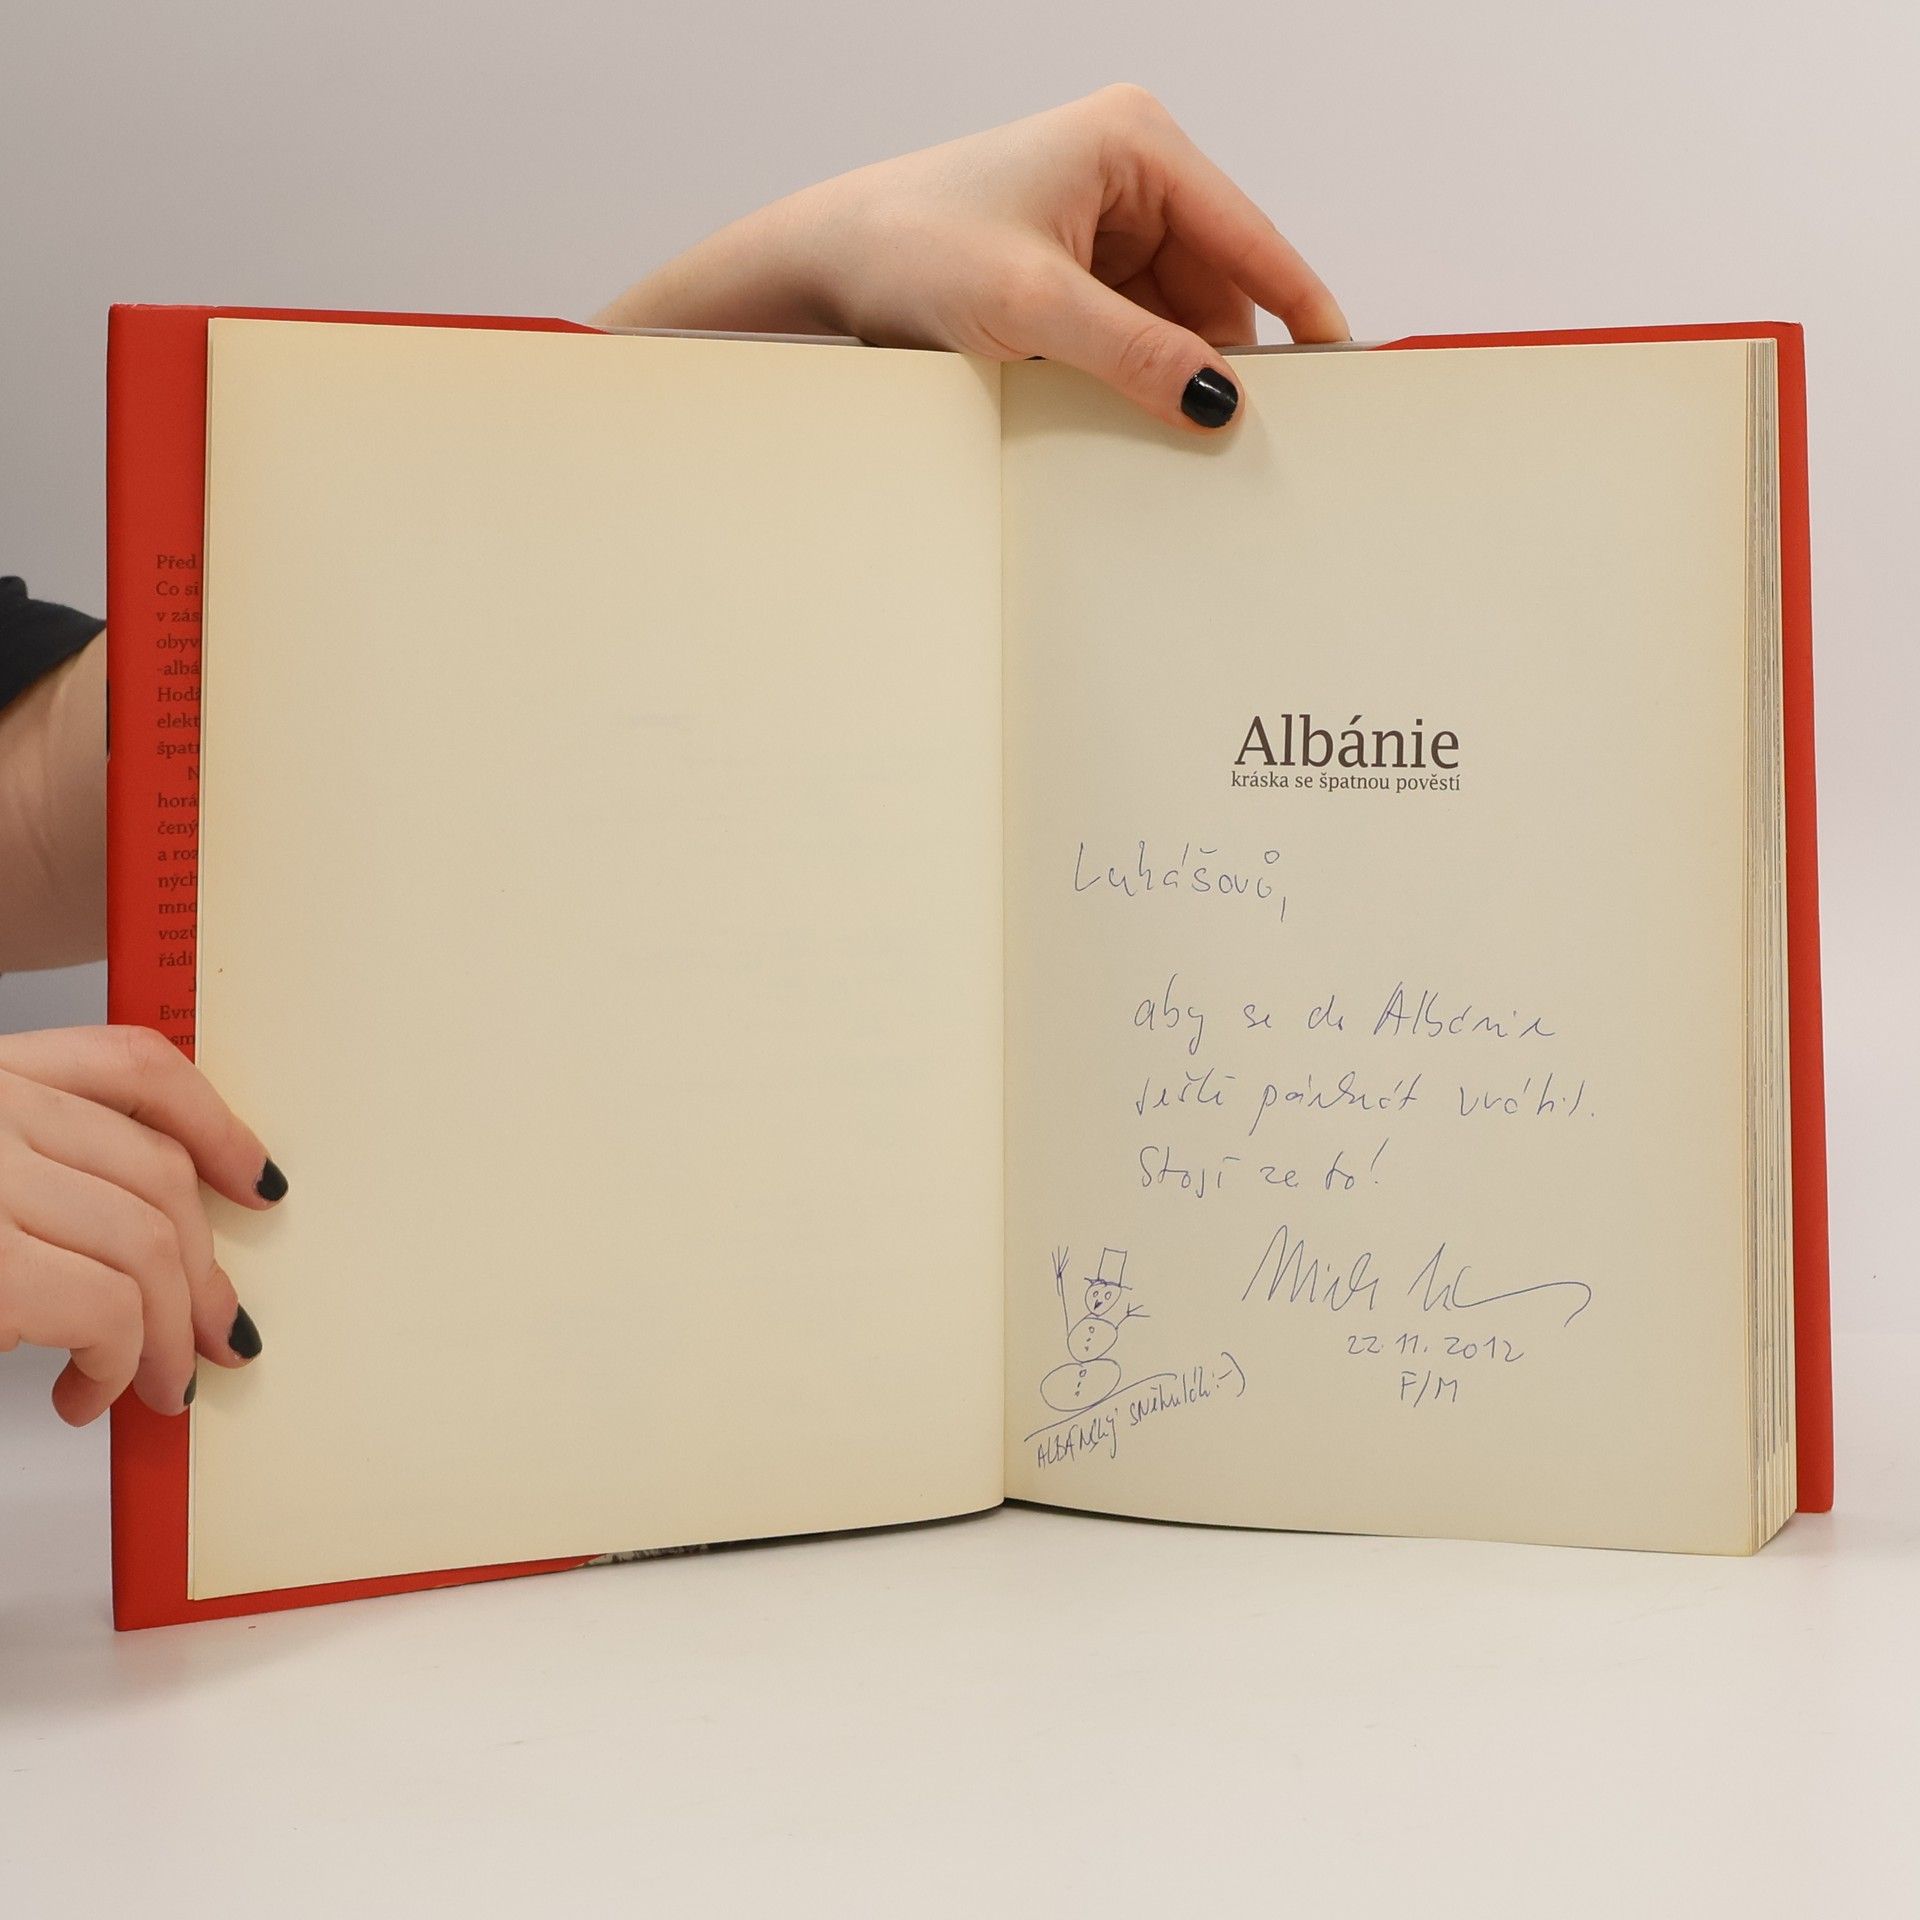 Před
Co si
v zás
obyv
-albá
Hodž
elekt
špatn
N
horá
čený
a roz
ných
mno
vozů
řádí
J
Evro
sm
Albánie
kráska se špatnou pověstí
Lukášovi,
aby se do Albánie
ještě párkrát vrátil.
Stojí za to!
22.11.2012
F/M
ALBÁNSKÝ SNĚHULÁK :-)